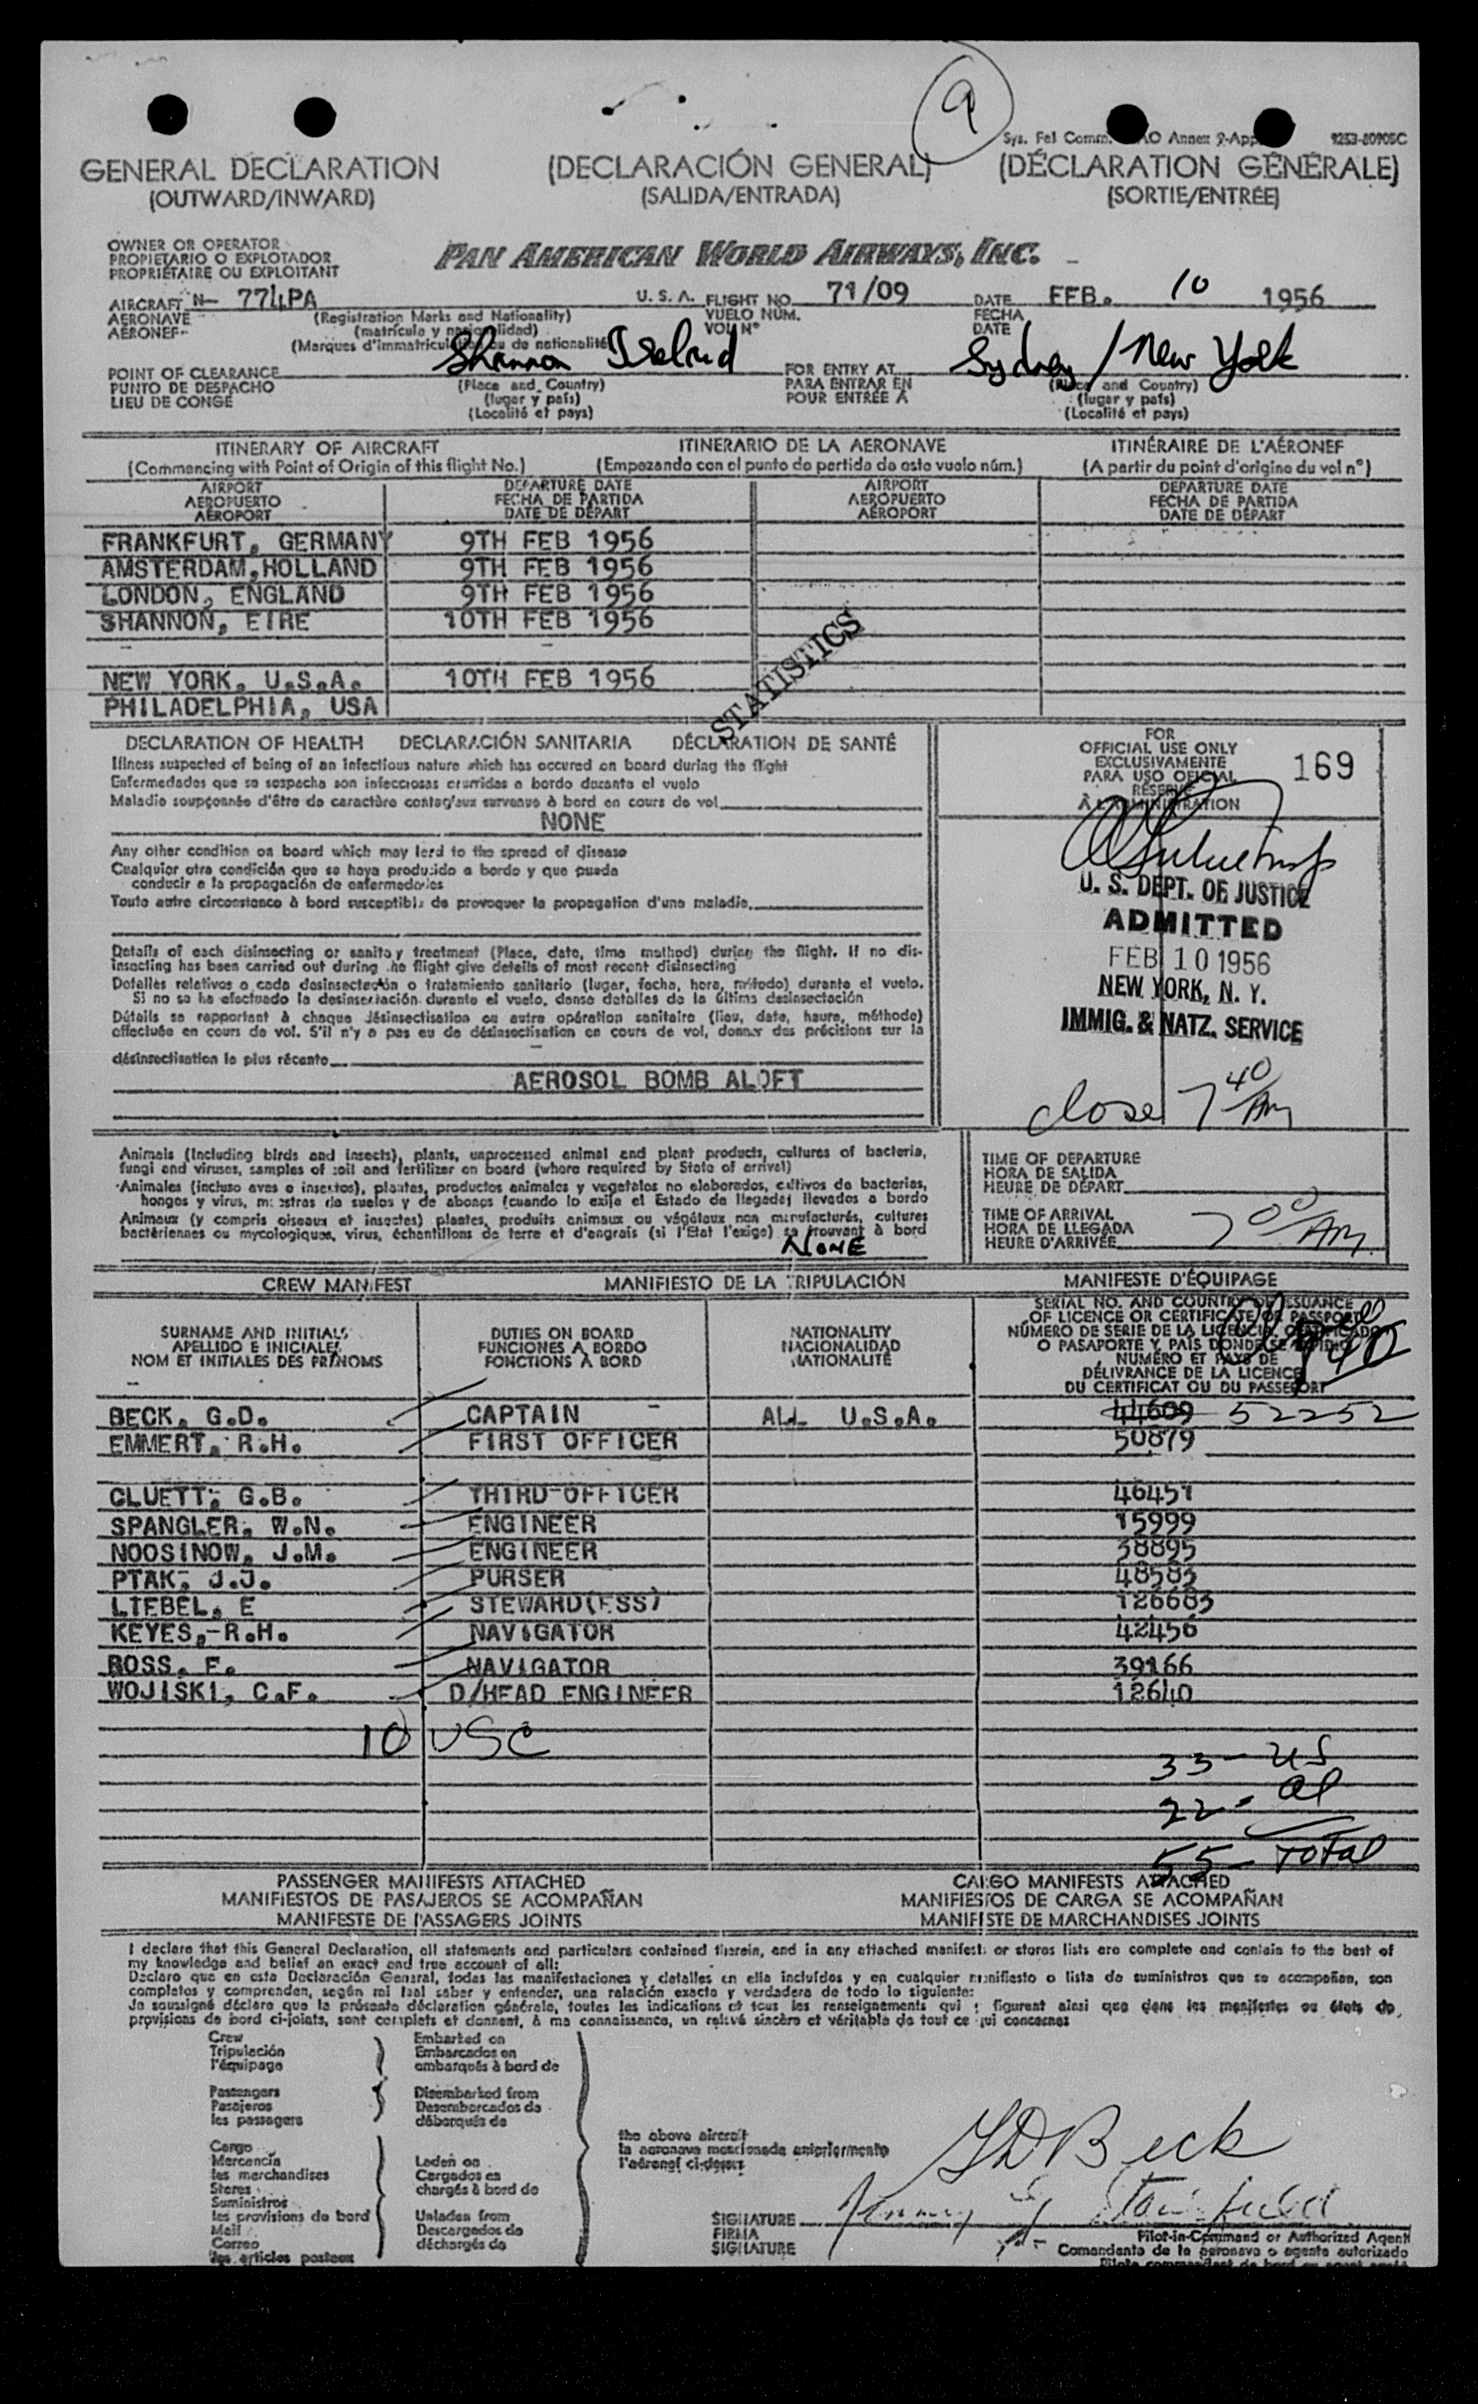 9
Sys. Fel Comm. AO Annex 9-App 9253-80905C
GENERAL DECLARATION (DECLARACIÓN GENERAL) (DÉCLARATION GÉNÉRALE)
(OUTWARD/INWARD) (SALIDA/ENTRADA) (SORTIE/ENTRÉE)
OWNER OR OPERATOR
PROPIETARIO O EXPLOTADOR
PROPRIÉTAIRE OU EXPLOITANT
PAN AMERICAN WORLD AIRWAYS, INC.
AIRCRAFT N- 774PA U. S. A. FLIGHT NO. 71/09 DATE FEB. 10 1956
AERONAVE (Registration Marks and Nationality) VUELO NÚM. FECHA
AÉRONEF (matrícula y nacionalidad) VOL N° DATE
(Marques d'immatriculation ou de nationalité)
POINT OF CLEARANCE Shannon FOR ENTRY AT Sydney / New York
PUNTO DE DESPACHO (Place and Country) PARA ENTRAR EN (Place and Country)
LIEU DE CONGÉ (lugar y país) POUR ENTRÉE À (lugar y país)
(Localité et pays) (Localité et pays)
ITINERARY OF AIRCRAFT ITINERARIO DE LA AERONAVE ITINÉRAIRE DE L'AÉRONEF
(Commencing with Point of Origin of this flight No.) (Empezando con el punto de partida de este vuelo núm.) (A partir du point d'origine du vol n°)
AIRPORT DEPARTURE DATE AIRPORT DEPARTURE DATE
AEROPUERTO FECHA DE PARTIDA AEROPUERTO FECHA DE PARTIDA
AÉROPORT DATE DE DÉPART AÉROPORT DATE DE DÉPART
FRANKFURT, GERMANY 9TH FEB 1956
AMSTERDAM, HOLLAND 9TH FEB 1956
LONDON, ENGLAND 9TH FEB 1956
SHANNON, EIRE 10TH FEB 1956
NEW YORK, U.S.A. 10TH FEB 1956
PHILADELPHIA, USA
STATISTICS
DECLARATION OF HEALTH DECLARACIÓN SANITARIA DÉCLARATION DE SANTÉ
Illness suspected of being of an infectious nature which has occured on board during the flight
Enfermedades que se sospecha son infecciosas ocurridas a bordo durante el vuelo
Maladie soupçonnée d'être de caractère contagieux survenue à bord en cours de vol
NONE
Any other condition on board which may lead to the spread of disease
Cualquier otra condición que se haya producido a bordo y que pueda
conducir a la propagación de enfermedades
Toute autre circonstance à bord susceptible de provoquer la propagation d'une maladie.
Details of each disinsecting or sanitary treatment (Place, date, time method) during the flight. If no dis-
insecting has been carried out during the flight give details of most recent disinsecting
Detalles relativos a cada desinsectación o tratamiento sanitario (lugar, fecha, hora, método) durante el vuelo.
Si no se ha efectuado la desinsectación durante el vuelo, dense detalles de la última desinsectación
Détails se rapportant à chaque désinsectisation ou autre opération sanitaire (lieu, date, heure, méthode)
effectuée en cours de vol. S'il n'y a pas eu de désinsectisation en cours de vol, donner des précisions sur la
désinsectisation la plus récente
AEROSOL BOMB ALOFT
FOR
OFFICIAL USE ONLY
EXCLUSIVAMENTE
PARA USO OFICIAL
RÉSERVÉ
À L'ADMINISTRATION
169
U. S. DEPT. OF JUSTICE
ADMITTED
FEB 10 1956
NEW YORK, N. Y.
IMMIG. & NATZ. SERVICE
close 7 40 AM
Animals (including birds and insects), plants, unprocessed animal and plant products, cultures of bacteria,
fungi and viruses, samples of soil and fertilizer on board (where required by State of arrival)
Animales (incluso aves e insectos), plantas, productos animales y vegetales no elaborados, cultivos de bacterias,
hongos y virus, muestras de suelos y de abonos (cuando lo exija el Estado de llegada) llevados a bordo
Animaux (y compris oiseaux et insectes) plantes, produits animaux ou végétaux non manufacturés, cultures
bactériennes ou mycologiques, virus, échantillons de terre et d'engrais (si l'Etat l'exige) se trouvant à bord
NONE
TIME OF DEPARTURE
HORA DE SALIDA
HEURE DE DÉPART
TIME OF ARRIVAL
HORA DE LLEGADA
HEURE D'ARRIVÉE 7 00 AM
CREW MANIFEST MANIFIESTO DE LA TRIPULACIÓN MANIFESTE D'ÉQUIPAGE
SURNAME AND INITIALS
APELLIDO E INICIALES
NOM ET INITIALES DES PRÉNOMS
DUTIES ON BOARD
FUNCIONES A BORDO
FONCTIONS À BORD
NATIONALITY
NACIONALIDAD
NATIONALITÉ
SERIAL NO. AND COUNTRY OF ISSUANCE
OF LICENCE OR CERTIFICATE OR PASSPORT
NÚMERO DE SERIE DE LA LICENCIA, CERTIFICADO
O PASAPORTE Y PAÍS DONDE SE EXPIDIÓ
NUMÉRO ET PAYS DE
DÉLIVRANCE DE LA LICENCE
DU CERTIFICAT OU DU PASSEPORT
BECK, G.D. CAPTAIN ALL U.S.A. 44609 52252
EMMERT, R.H. FIRST OFFICER 50879
CLUETT, G.B. THIRD OFFICER 46451
SPANGLER, W.N. ENGINEER 15999
NOOSINOW, J.M. ENGINEER 38895
PTAK, J.J. PURSER 48583
LIEBEL, E STEWARD(ESS) 126683
KEYES, R.H. NAVIGATOR 42456
ROSS, F. NAVIGATOR 39166
WOJISKI, C.F. D/HEAD ENGINEER 12640
10 USC
33 - US
22 - al
55 - Total
PASSENGER MANIFESTS ATTACHED CARGO MANIFESTS ATTACHED
MANIFIESTOS DE PASAJEROS SE ACOMPAÑAN MANIFIESTOS DE CARGA SE ACOMPAÑAN
MANIFESTE DE PASSAGERS JOINTS MANIFISTE DE MARCHANDISES JOINTS
I declare that this General Declaration, all statements and particulars contained therein, and in any attached manifests or stores lists are complete and contain to the best of
my knowledge and belief an exact and true account of all:
Declaro que en esta Declaración General, todas las manifestaciones y detalles en ella incluídos y en cualquier manifiesto o lista de suministros que se acompañan, son
completos y comprenden, según mi leal saber y entender, una relación exacta y verdadera de todo lo siguiente:
Je soussigné déclare que la présente déclaration générale, toutes les indications et tous les renseignements qui y figurent ainsi que dans les manifestes ou états de
provisions de bord ci-joints, sont complets et donnent, à ma connaissance, un relevé sincère et véritable de tout ce qui concerne:
Crew
Tripulación
l'équipage
Embarked on
Embarcados en
embarqués à bord de
Passengers
Pasajeros
les passagers
Disembarked from
Desembarcados de
débarqués de
Cargo
Mercancía
les marchandises
Stores
Suministros
les provisions de bord
Mail
Correo
les articles postaux
Laden on
Cargados en
chargés à bord de
Unladen from
Descargados de
déchargés de
the above aircraft
la aeronave mencionada anteriormente
l'aéronef ci-dessus
GD Beck
SIGNATURE
FIRMA
SIGNATURE
Pilot-in-Command or Authorized Agent
Comandante de la aeronave o agente autorizado